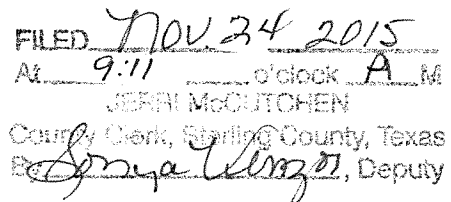 FILED Nov. 24 2015
At 9:11 o'clock A M
JERRI McCUTCHEN
County Clerk, Sterling County, Texas
By Sonya, Deputy